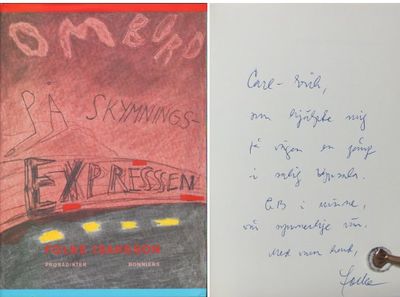 OMBORD
PÅ SKYMNINGS-
EXPRESSEN
FOLKE ISAKSSON
PROSADIKTER BONNIERS
Carl-Erik,
som hjälpte mig
på vägen en gång
i salig Uppsala.
GB i minne,
vår gemensamme vän.
Med varm hand,
Folke